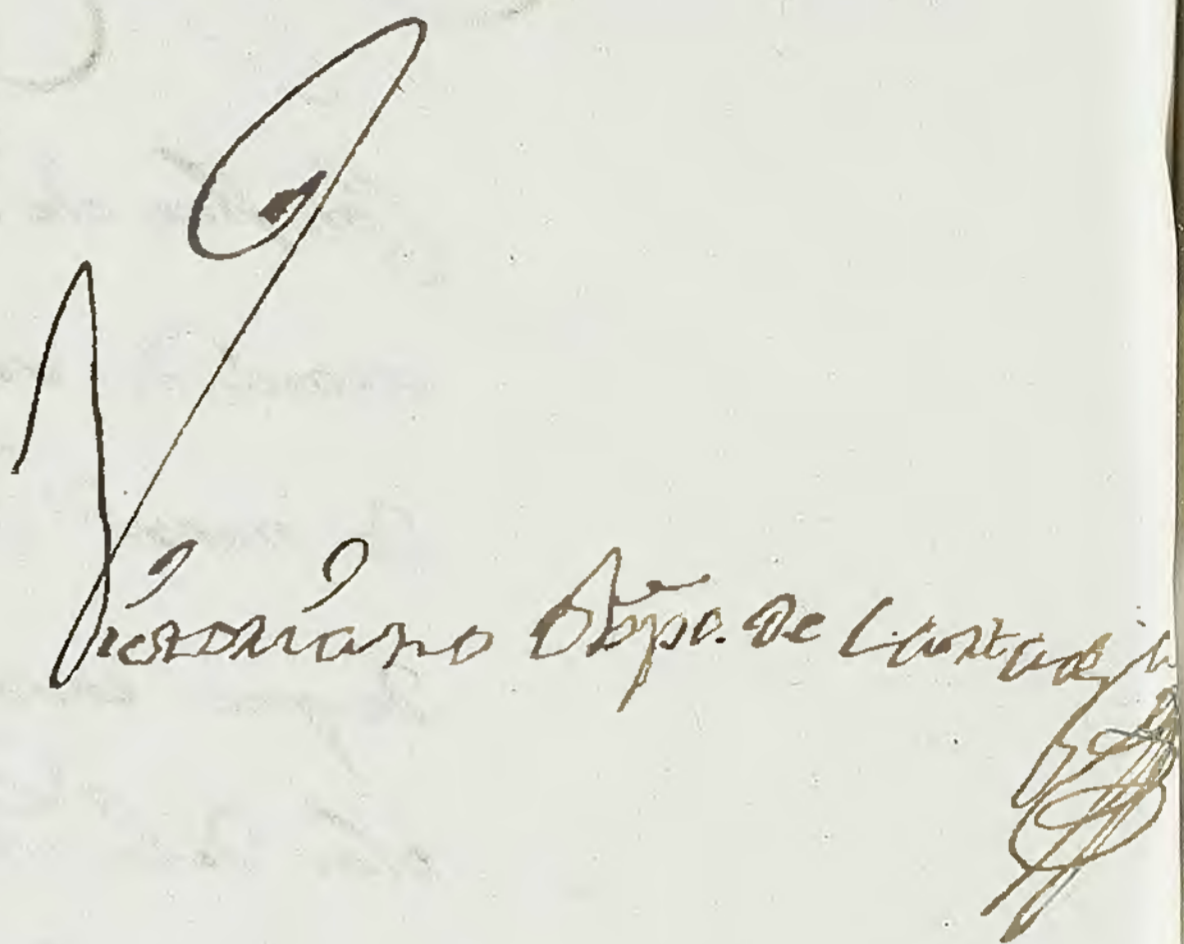 Victoriano Obpo. De Cartaga